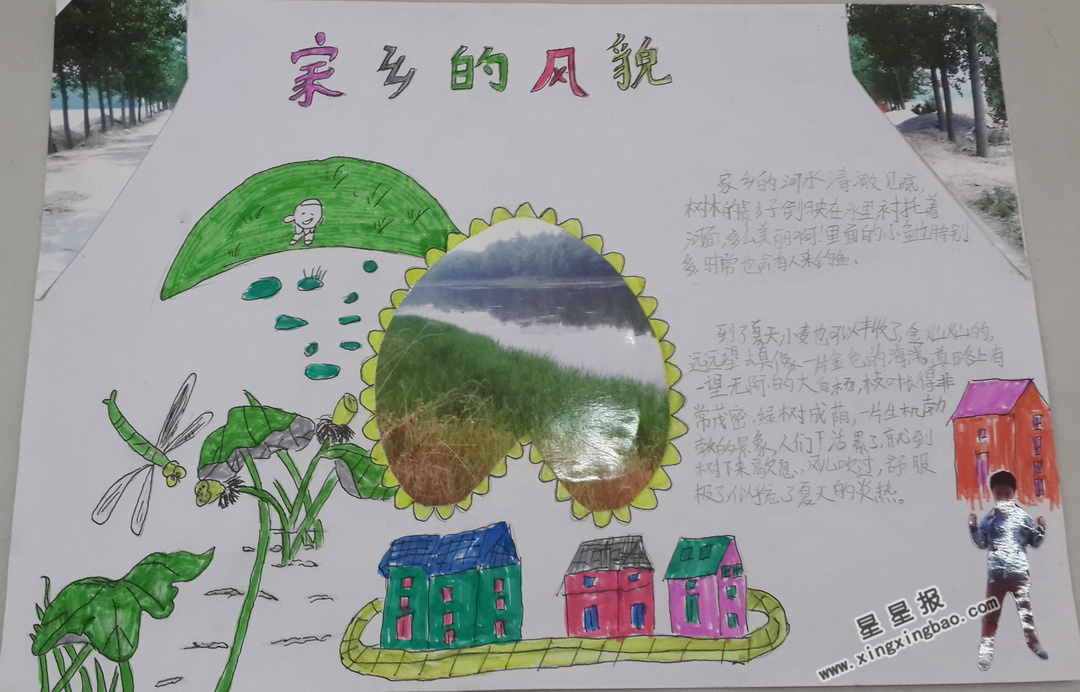 家乡的风貌
家乡的河水清澈见底,
树木的影子倒映在水里衬托着
河面,多么美丽啊!里面的小鱼也特别
多,时常也会有人来钓鱼。
到了夏天小麦也可以丰收了,金灿灿的,
远远望去真像一片金色的海洋,道路上有
一望无际的大白杨,枝叶长得非
常茂密,绿树成荫,一片生机勃
勃的景象,人们干活累了,就到
树下来歇息,风儿吹过,舒服
极了似乎忘了夏天的炎热。
星星报
www.xingxingbao.com